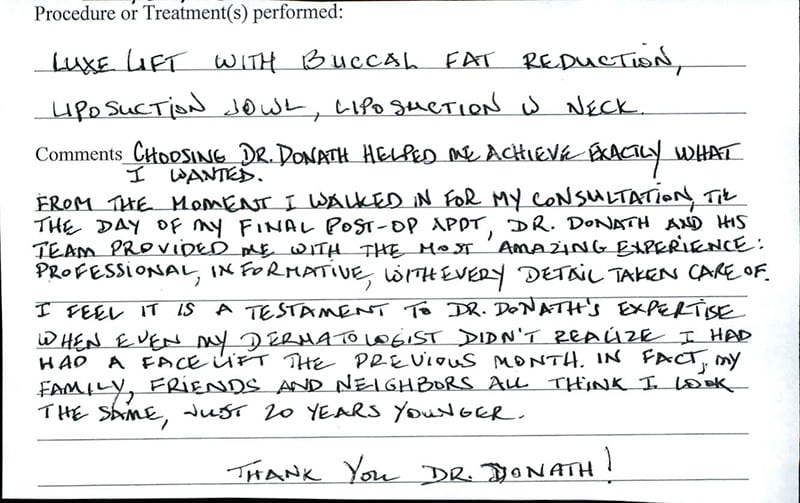 Procedure or Treatment(s) performed:
LUXE LIFT WITH BUCCAL FAT REDUCTION,
LIPOSUCTION JOWL, LIPOSUCTION W NECK.
Comments CHOOSING DR. DONATH HELPED ME ACHIEVE EXACTLY WHAT
I WANTED.
FROM THE MOMENT I WALKED IN FOR MY CONSULTATION, TIL
THE DAY OF MY FINAL POST-OP APPT, DR. DONATH AND HIS
TEAM PROVIDED ME WITH THE MOST AMAZING EXPERIENCE:
PROFESSIONAL, INFORMATIVE, WITH EVERY DETAIL TAKEN CARE OF.
I FEEL IT IS A TESTAMENT TO DR. DONATH'S EXPERTISE
WHEN EVEN MY DERMATOLOGIST DIDN'T REALIZE I HAD
HAD A FACELIFT THE PREVIOUS MONTH. IN FACT, MY
FAMILY, FRIENDS AND NEIGHBORS ALL THINK I LOOK
THE SAME, JUST 20 YEARS YOUNGER.
THANK YOU DR. DONATH!